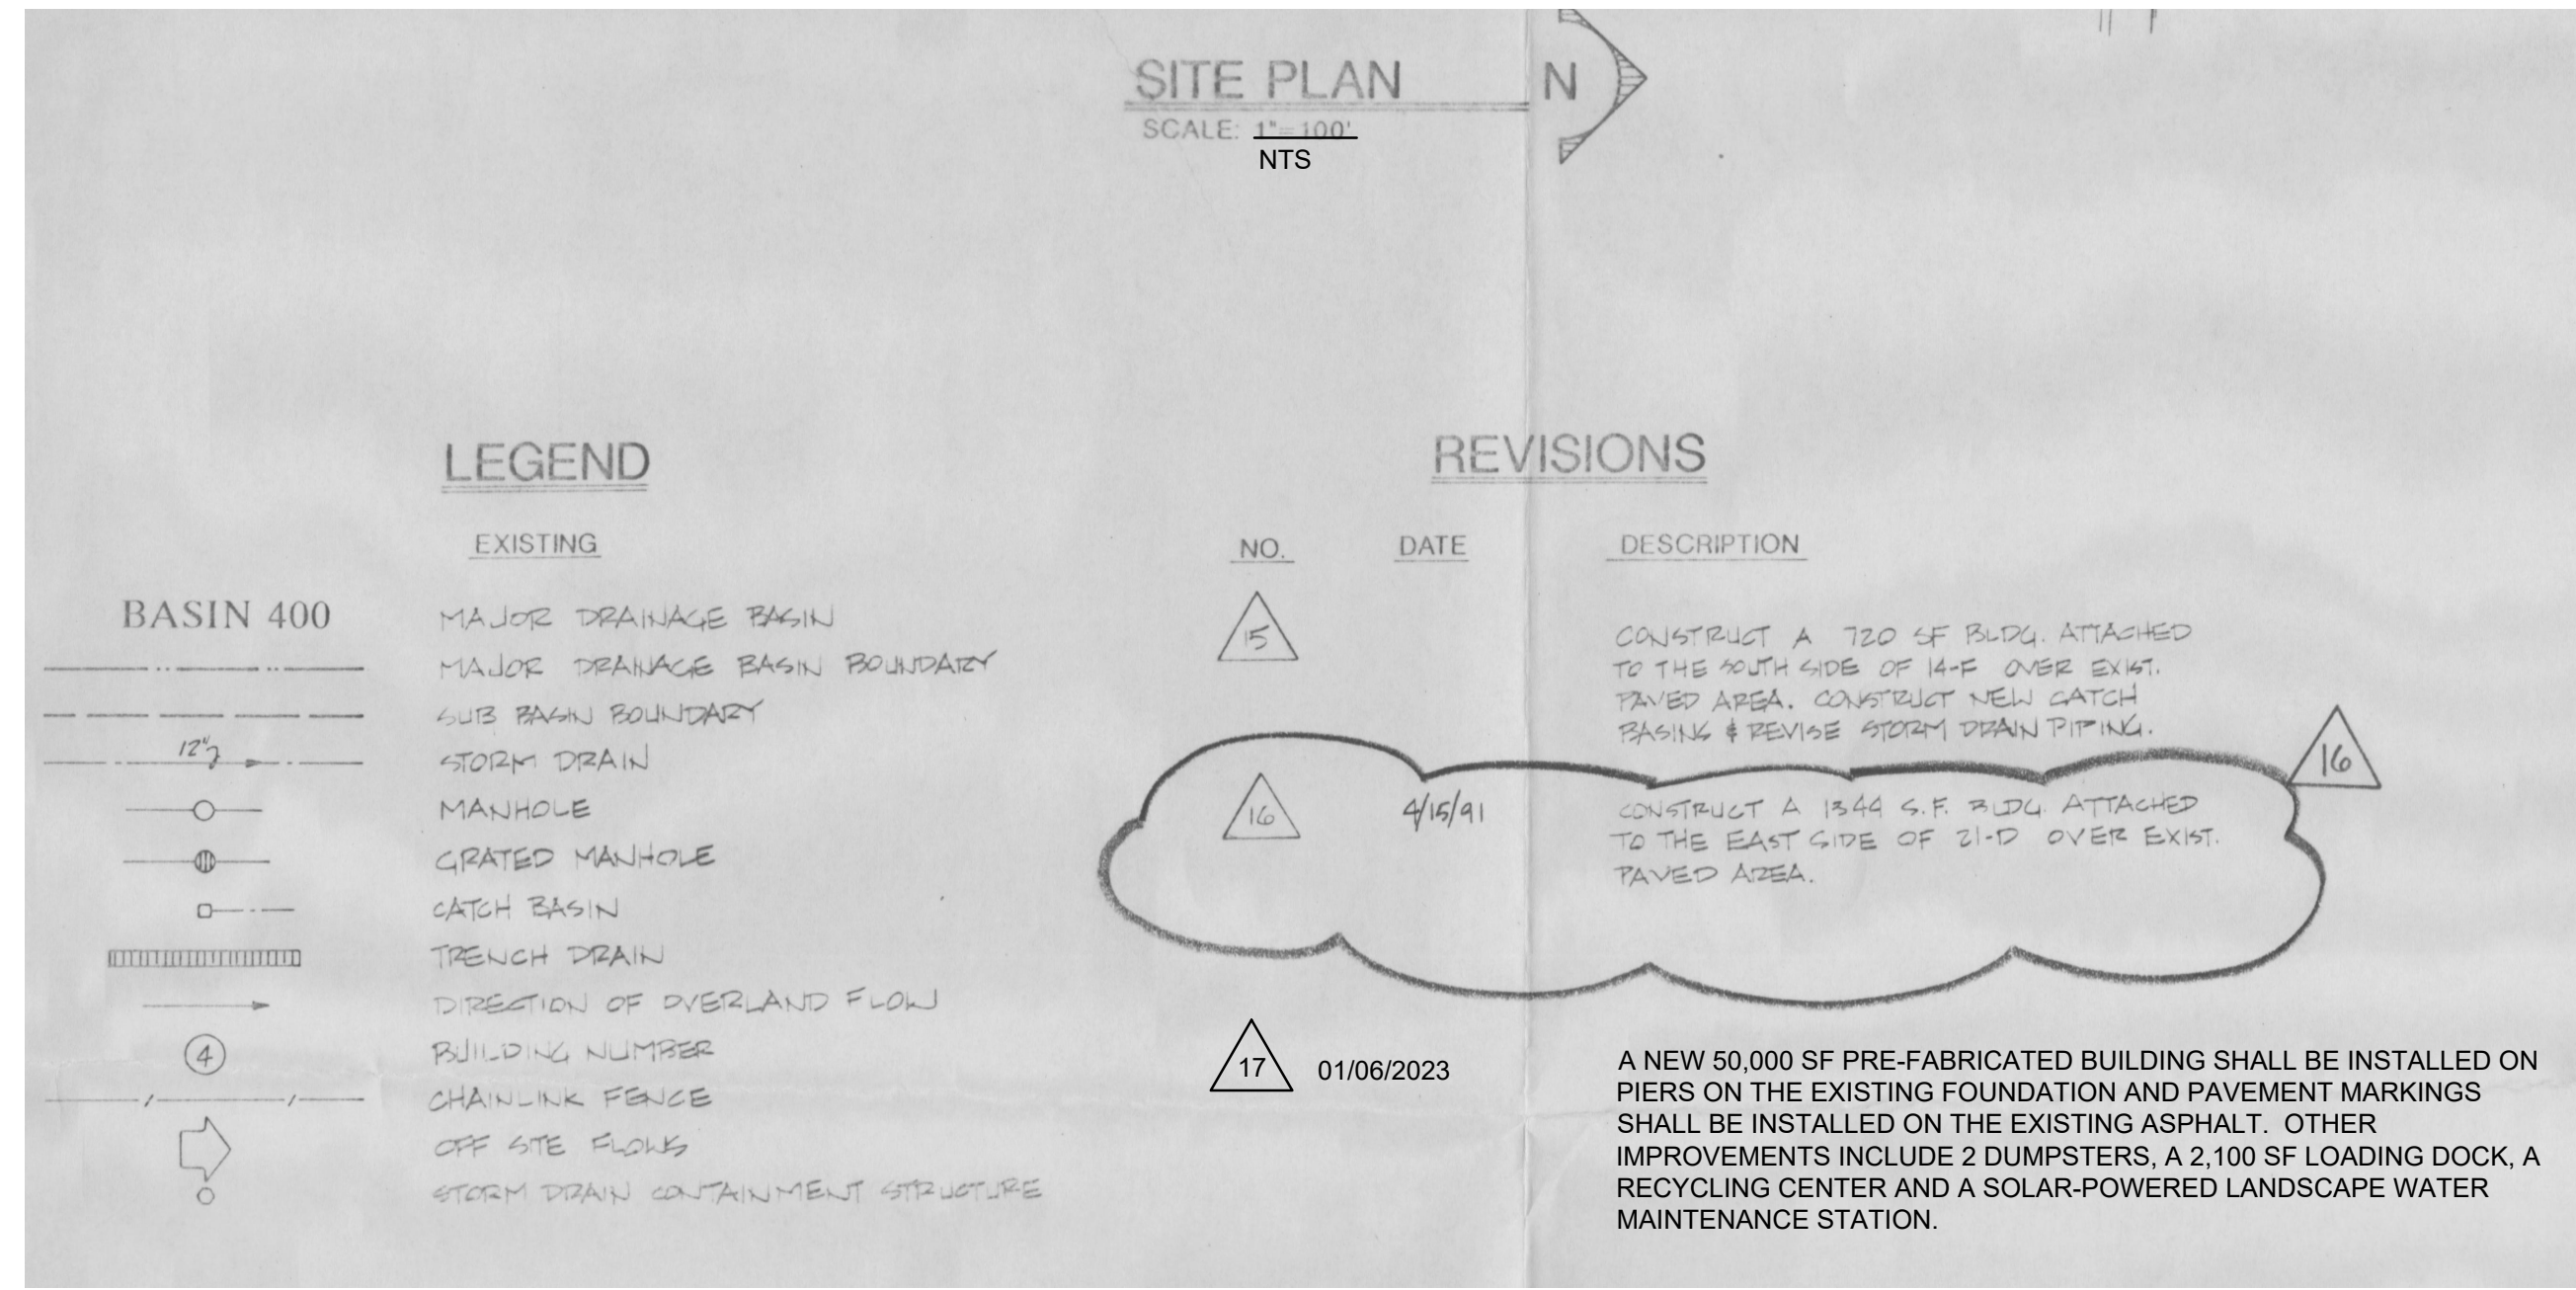 SITE PLAN
N
SCALE: 1"=100'
NTS
LEGEND
EXISTING
BASIN 400
MAJOR DRAINAGE BASIN
MAJOR DRAINAGE BASIN BOUNDARY
SUB BASIN BOUNDARY
12"
STORM DRAIN
MANHOLE
GRATED MANHOLE
CATCH BASIN
TRENCH DRAIN
DIRECTION OF OVERLAND FLOW
4
BUILDING NUMBER
CHAINLINK FENCE
OFF SITE FLOWS
STORM DRAIN CONTAINMENT STRUCTURE
REVISIONS
NO. DATE DESCRIPTION
15
CONSTRUCT A 720 SF BLDG. ATTACHED
TO THE SOUTH SIDE OF 14-F OVER EXIST.
PAVED AREA. CONSTRUCT NEW CATCH
BASINS & REVISE STORM DRAIN PIPING.
16
16 4/15/91 CONSTRUCT A 1344 S.F. BLDG. ATTACHED
TO THE EAST SIDE OF 21-D OVER EXIST.
PAVED AREA.
17 01/06/2023 A NEW 50,000 SF PRE-FABRICATED BUILDING SHALL BE INSTALLED ON
PIERS ON THE EXISTING FOUNDATION AND PAVEMENT MARKINGS
SHALL BE INSTALLED ON THE EXISTING ASPHALT. OTHER
IMPROVEMENTS INCLUDE 2 DUMPSTERS, A 2,100 SF LOADING DOCK, A
RECYCLING CENTER AND A SOLAR-POWERED LANDSCAPE WATER
MAINTENANCE STATION.